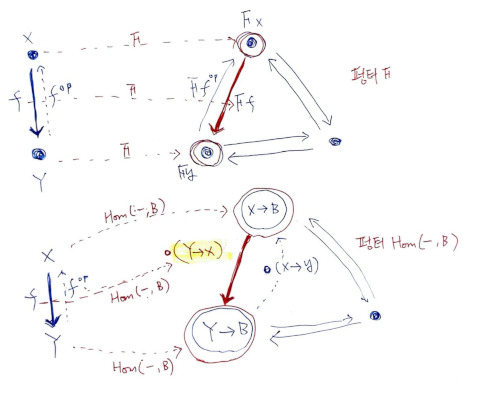 X
F
Fx
f
f^op
F
Ff^op
Ff
펑터 F
Y
F
Fy
Hom(-,B)
X→B
X
∘(Y→X)
펑터 Hom(-,B)
f
f^op
Hom(-,B)
∘(X→Y)
Y
Y→B
Hom(-,B)